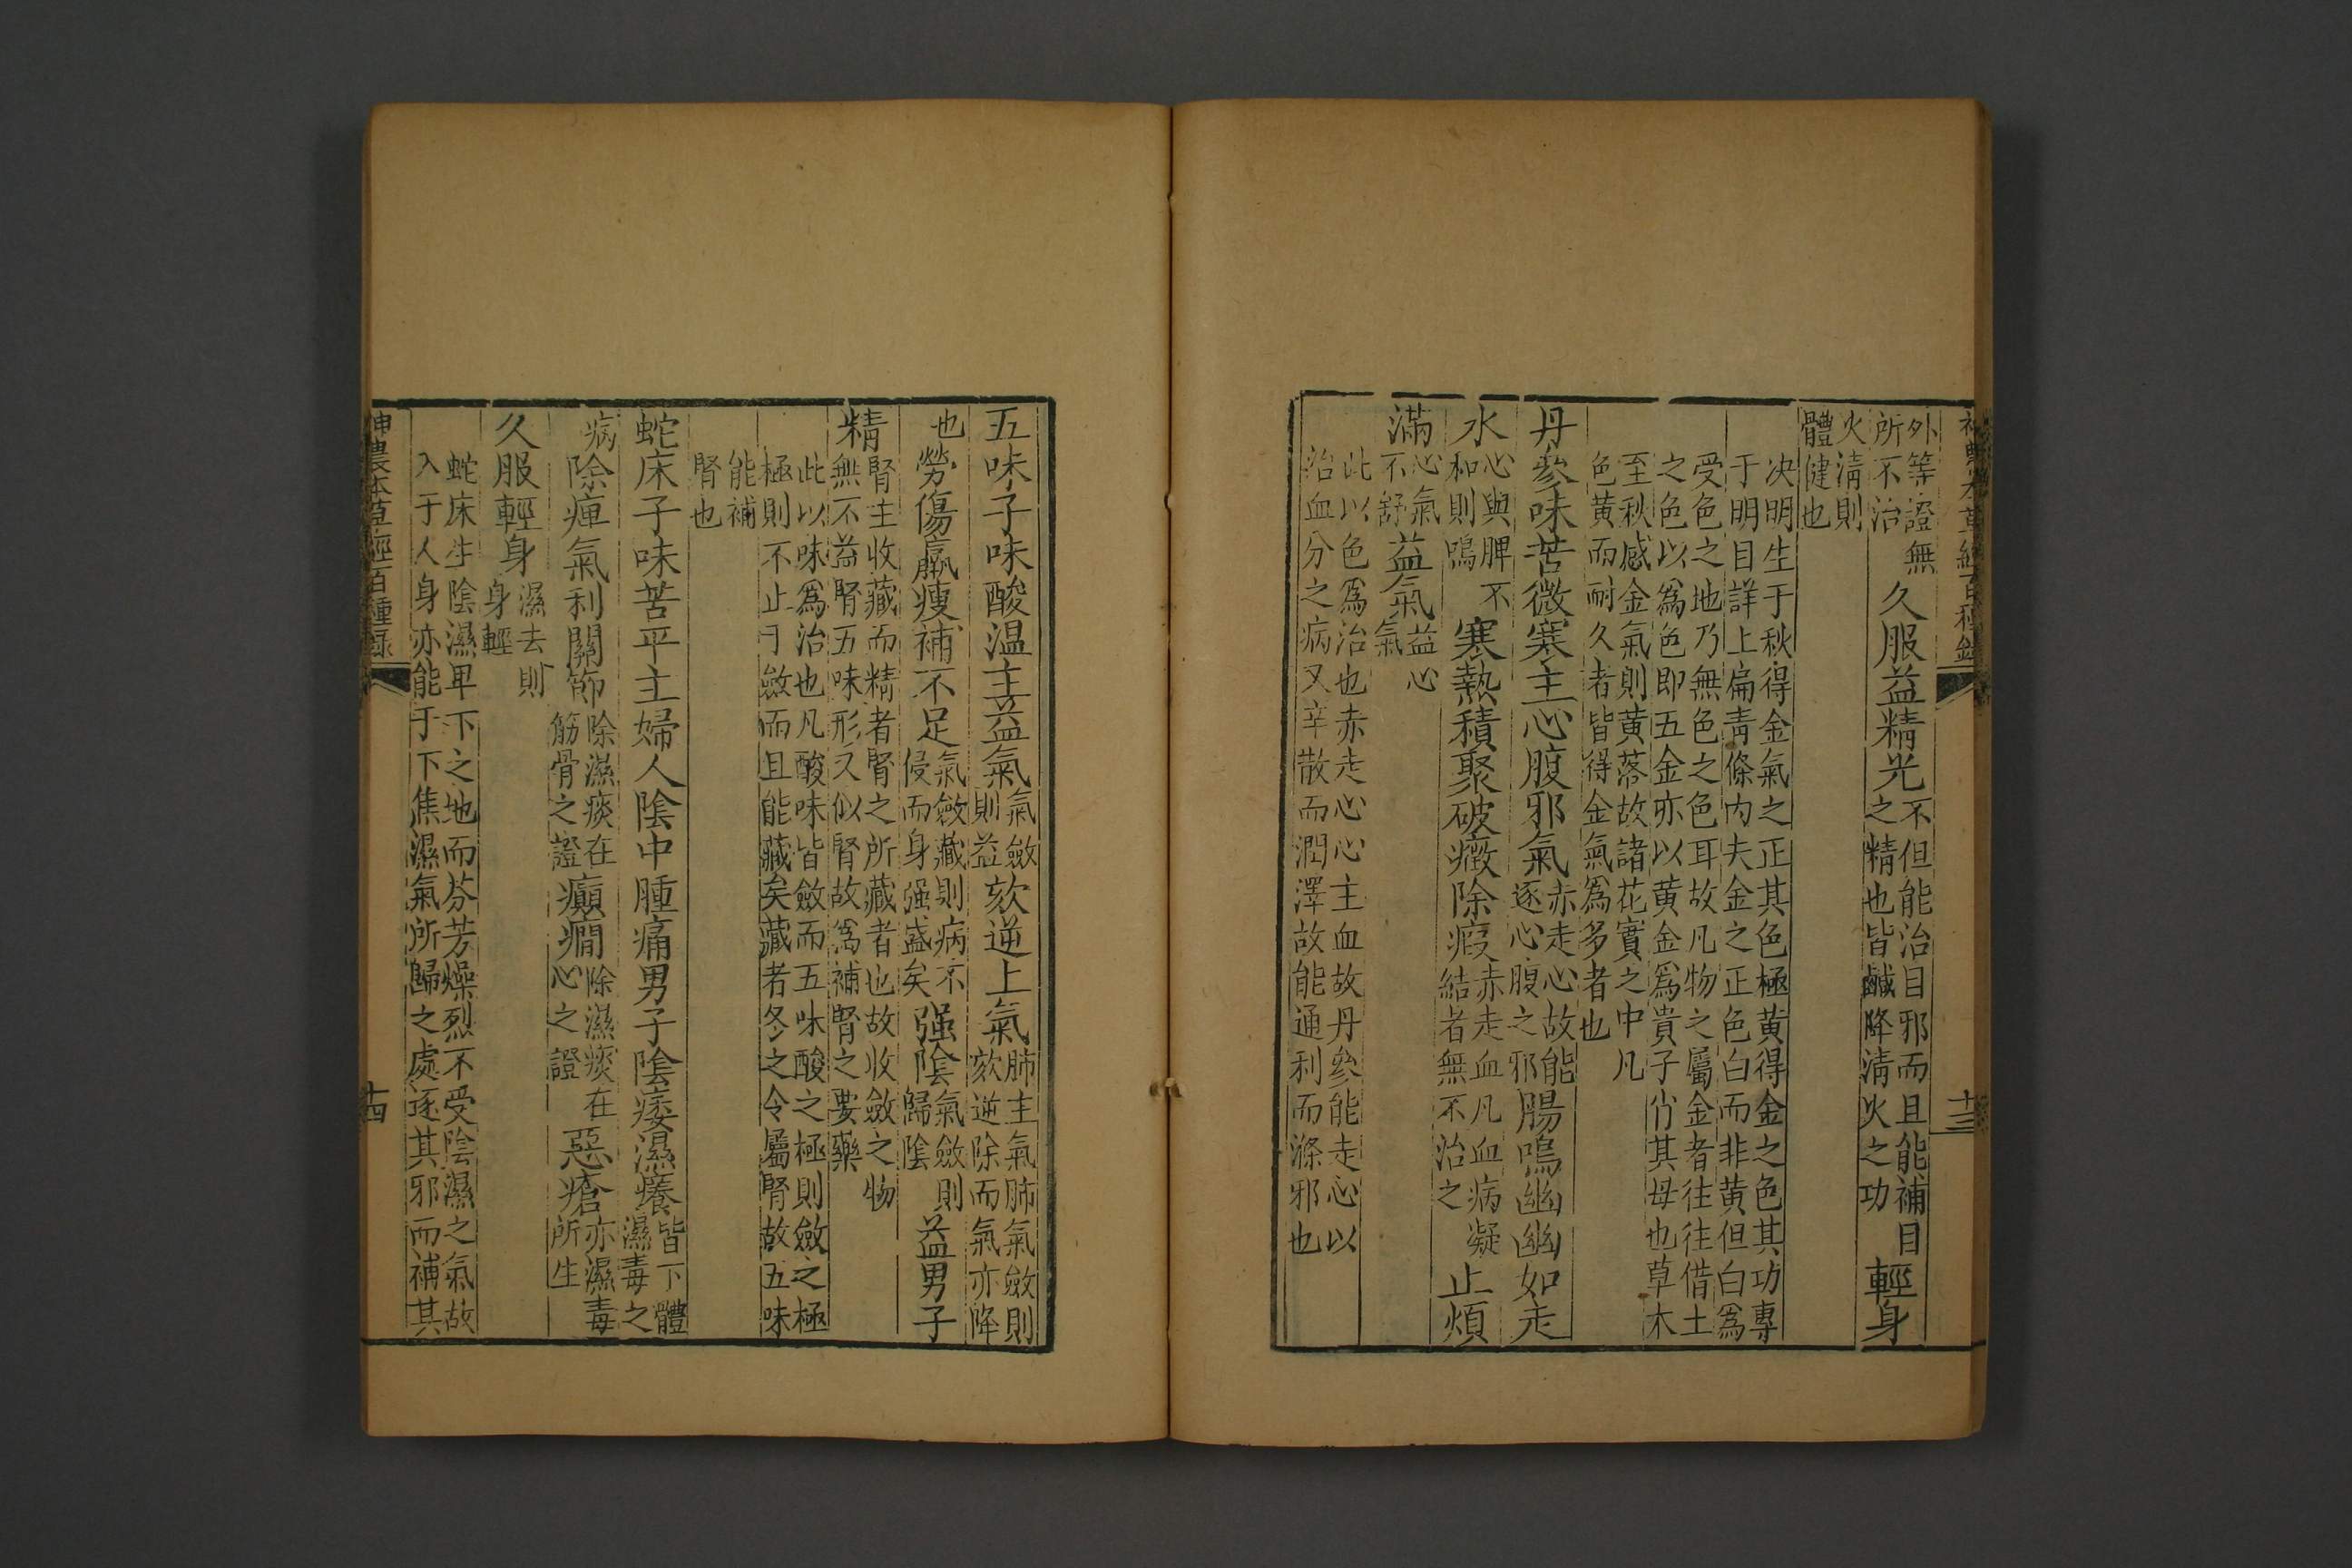 外等證無
所不治
久服益精光
不但能治目邪而且能補目
之精也皆鹹降清火之功
輕身
火清則
體健也
决明生于秋得金氣之正其色極黄得金之色其功專
于明目詳上扁青條内夫金之正色白而非黄但白爲
受色之地乃無色之色耳故凡物之屬金者往往借土
之色以爲色即五金亦以黄金爲貴子肖其母也草木
至秋感金氣則黄落故諸花實之中凡
色黄而耐久者皆得金氣爲多者也
丹參味苦微寒主心腹邪氣
赤走心故能
逐心腹之邪
腸鳴幽幽如走
水
心與脾不
和則鳴
寒熱積聚破癥除瘕
赤走血凡血病凝
結者無不治之
止煩
滿
心氣
不舒
益氣
益心
氣
此以色爲治也赤走心心主血故丹參能走心以
治血分之病又辛散而潤澤故能通利而滌邪也
神農本草經百種錄
十三
五味子味酸温主益氣
氣斂
則益
欬逆上氣
肺主氣肺氣斂則
欬逆除而氣亦降
也
勞傷羸瘦補不足
氣斂藏則病不
侵而身强盛矣
强陰
氣斂則
歸陰
益男子
精
腎主收藏而精者腎之所藏者也故收斂之物
無不益腎五味形又似腎故爲補腎之要藥
此以味爲治也凡酸味皆斂而五味酸之極則斂之極
極則不止于斂而且能藏矣藏者冬之令屬腎故五味
能補
腎也
蛇床子味苦平主婦人陰中腫痛男子陰痿濕癢
皆下體
濕毒之
病
除痺氣利關節
除濕痰在
筋骨之證
癲癇
除濕痰在
心之證
惡瘡
亦濕毒
所生
久服輕身
濕去則
身輕
蛇床生陰濕卑下之地而芬芳燥烈不受陰濕之氣故
入于人身亦能于下焦濕氣所歸之處逐其邪而補其
神農本草經百種錄
十四